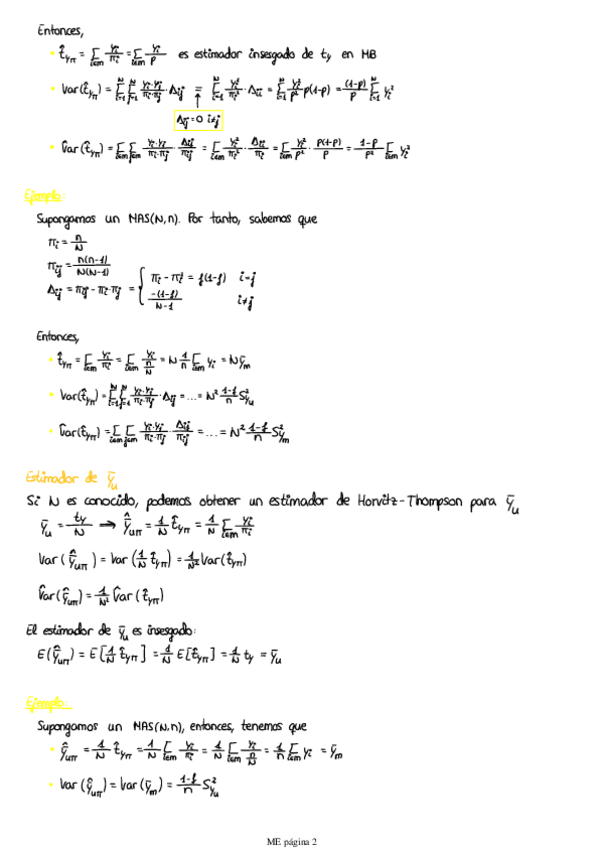 Entonces,
• t̂_yπ = Σ_{i∈m} y_i/π_i = Σ_{i∈m} y_i/p es estimador insesgado de t_y en MB
• Var(t̂_yπ) = Σ_{i=1}^N Σ_{j=1}^N (y_i·y_j)/(π_i·π_j) · Δ_ij = Σ_{i=1}^N y_i²/π_i² · Δ_ii = Σ_{i=1}^N y_i²/p² p(1-p) = (1-p)/p Σ_{i=1}^N y_i²
Δ_ij=0 i≠j
• V̂ar(t̂_yπ) = Σ_{i∈m} Σ_{j∈m} (y_i·y_j)/(π_i·π_j) · Δ_ij/π_ij = Σ_{i∈m} y_i²/π_i² · Δ_ii/π_i = Σ_{i∈m} y_i²/p² · p(1-p)/p = (1-p)/p² Σ_{i∈m} y_i²
Ejemplo:
Supongamos un MAS(N,n). Por tanto, sabemos que
π_i = n/N
π_ij = n(n-1)/N(N-1)
Δ_ij = π_ij - π_i·π_j = { π_i - π_i² = f(1-f) i=j
-(1-f)/N-1 i≠j
Entonces,
• t̂_yπ = Σ_{i∈m} y_i/π_i = Σ_{i∈m} y_i/(n/N) = N 1/n Σ_{i∈m} y_i = Nȳ_m
• Var(t̂_yπ) = Σ_{i=1}^N Σ_{j=1}^N (y_i·y_j)/(π_i·π_j) · Δ_ij = ... = N² (1-f)/n S²_{y_u}
• V̂ar(t̂_yπ) = Σ_{i∈m} Σ_{j∈m} (y_i·y_j)/(π_i·π_j) · Δ_ij/π_ij = ... = N² (1-f)/n S²_{y_m}
Estimador de ȳ_u
Si N es conocido, podemos obtener un estimador de Horvitz-Thompson para ȳ_u
ȳ_u = t_y/N ⟹ ȳ̂_uπ = 1/N t̂_yπ = 1/N Σ_{i∈m} y_i/π_i
Var(ȳ̂_uπ) = Var(1/N t̂_yπ) = 1/N² Var(t̂_yπ)
V̂ar(ȳ̂_uπ) = 1/N² V̂ar(t̂_yπ)
El estimador de ȳ_u es insesgado:
E(ȳ̂_uπ) = E[1/N t̂_yπ] = 1/N E[t̂_yπ] = 1/N t_y = ȳ_u
Ejemplo:
Supongamos un MAS(N,n), entonces, tenemos que
• ȳ̂_uπ = 1/N t̂_yπ = 1/N Σ_{i∈m} y_i/π_i = 1/N Σ_{i∈m} y_i/(n/N) = 1/n Σ_{i∈m} y_i = ȳ_m
• Var(ȳ̂_uπ) = Var(ȳ_m) = (1-f)/n S²_{y_u}
ME página 2